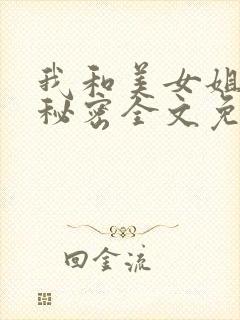 我和美女姐
秘密全文免
回金流